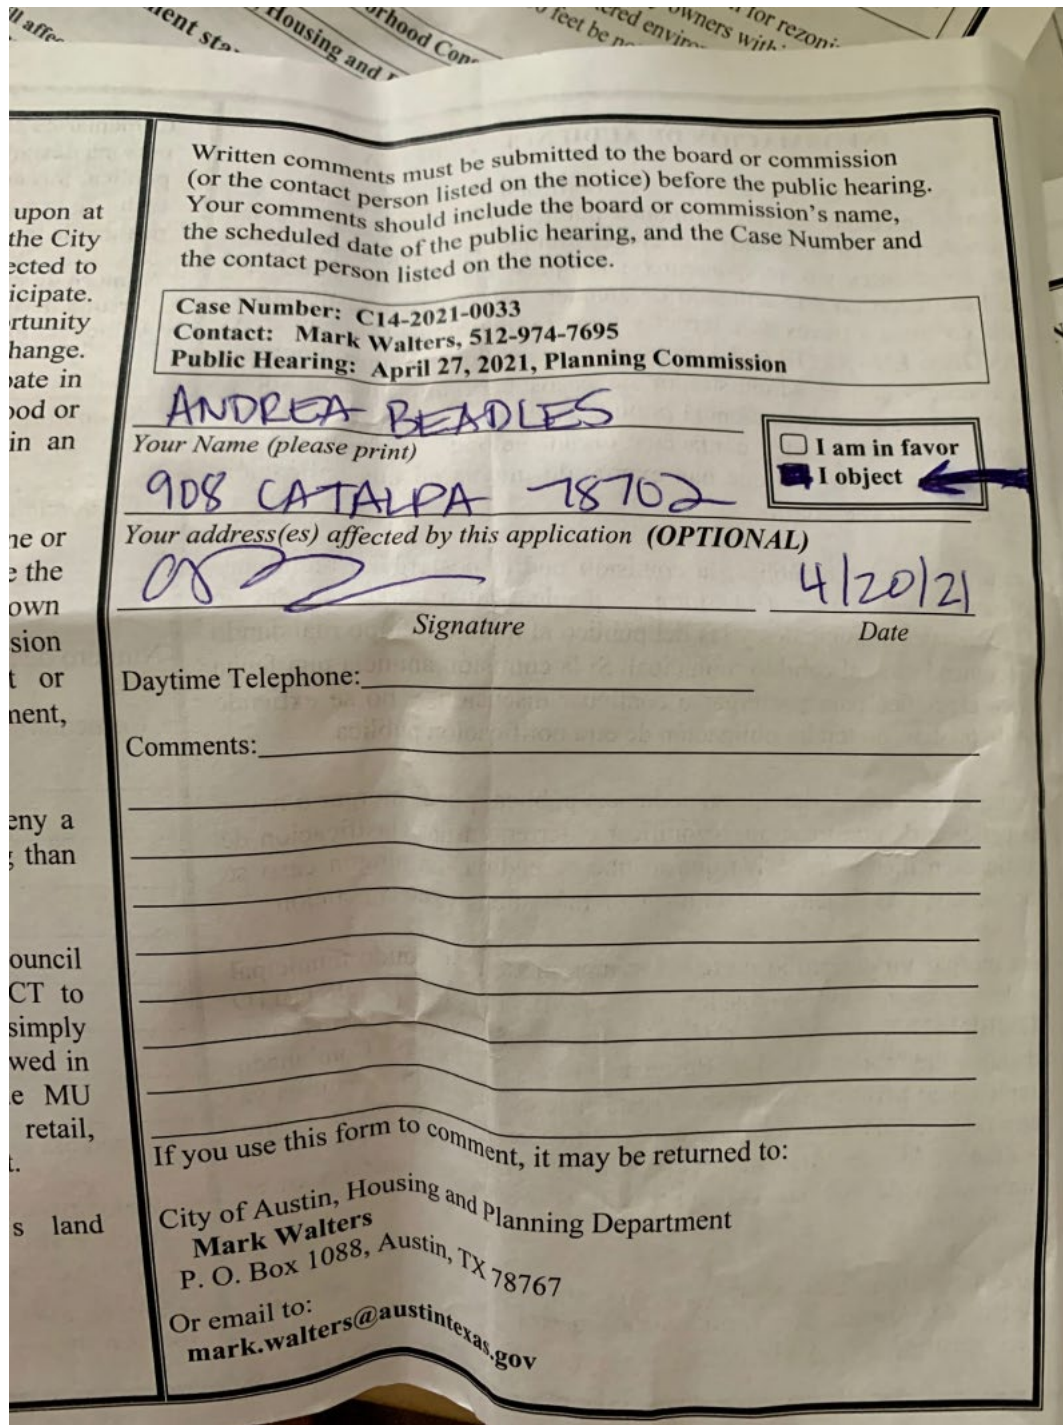 ll affe
ment sta
Housing and
orhood Con
feet be no
ered enviro
owners with
for rezoni
upon at
the City
ected to
icipate.
rtunity
hange.
pate in
ood or
in an
ne or
e the
own
sion
t or
nent,
eny a
g than
ouncil
CT to
simply
wed in
e MU
retail,
t.
s land
Written comments must be submitted to the board or commission
(or the contact person listed on the notice) before the public hearing.
Your comments should include the board or commission's name,
the scheduled date of the public hearing, and the Case Number and
the contact person listed on the notice.
Case Number: C14-2021-0033
Contact: Mark Walters, 512-974-7695
Public Hearing: April 27, 2021, Planning Commission
ANDREA BEADLES
Your Name (please print)
I am in favor
I object
908 CATALPA 78702
Your address(es) affected by this application (OPTIONAL)
4/20/21
Signature Date
Daytime Telephone:
Comments:
If you use this form to comment, it may be returned to:
City of Austin, Housing and Planning Department
Mark Walters
P. O. Box 1088, Austin, TX 78767
Or email to:
mark.walters@austintexas.gov